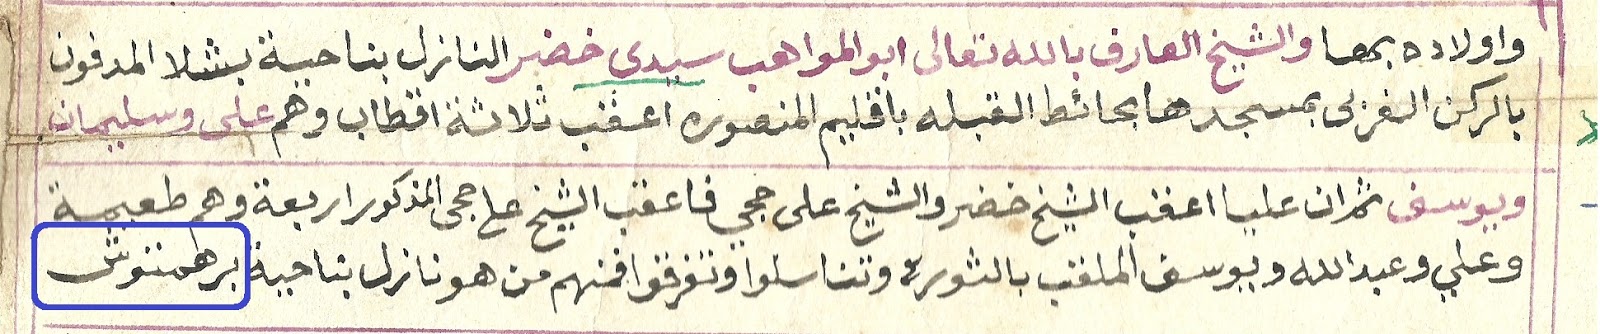 واولاده بمصا والشيخ العارف بالله تعالى ابو المواهب سيدى خضر النازل بناحية بشلا المدفون
بالركن الغربى بمسجدها بحائط القبله باقليم المنصوره اعقب ثلاثة اقطاب وهم على وسليمان
ويوسف ثم ان عليا اعقب الشيخ خضر والشيخ على حجي فاعقب الشيخ على حجى المذكور اربعة وهم طعيمة
وعلي وعبد الله ويوسف الملقب بالثوره وتناسلوا وتفرقوا فمنهم من هو نازل بناحية برهمتوش